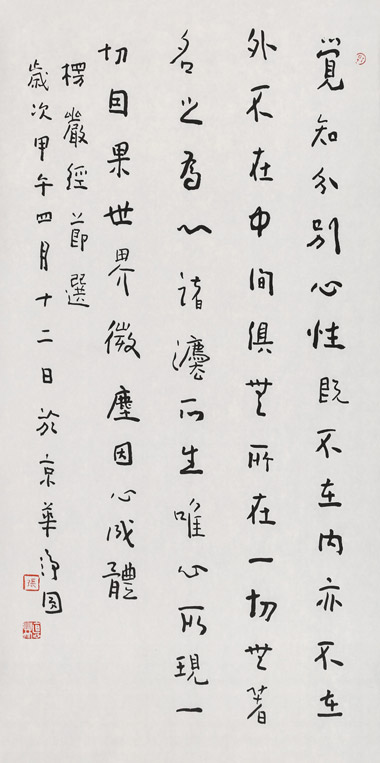 覺知分別心性既不在內亦不在
外不在中間俱無所在一切無著
名之為心諸灋所生唯心所現一
切因果世界微塵因心成體
楞嚴經節選
歲次甲午四月十二日於京華淨